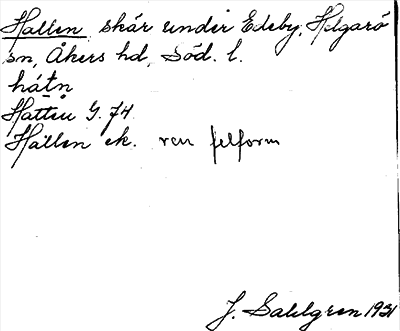 Hallen skär under Edeby, Helgarö
sn, Åkers hd, Söd. l.
hátn
Hatten G. 74
Hällen ek. ren felform
J. Sahlgren 1931